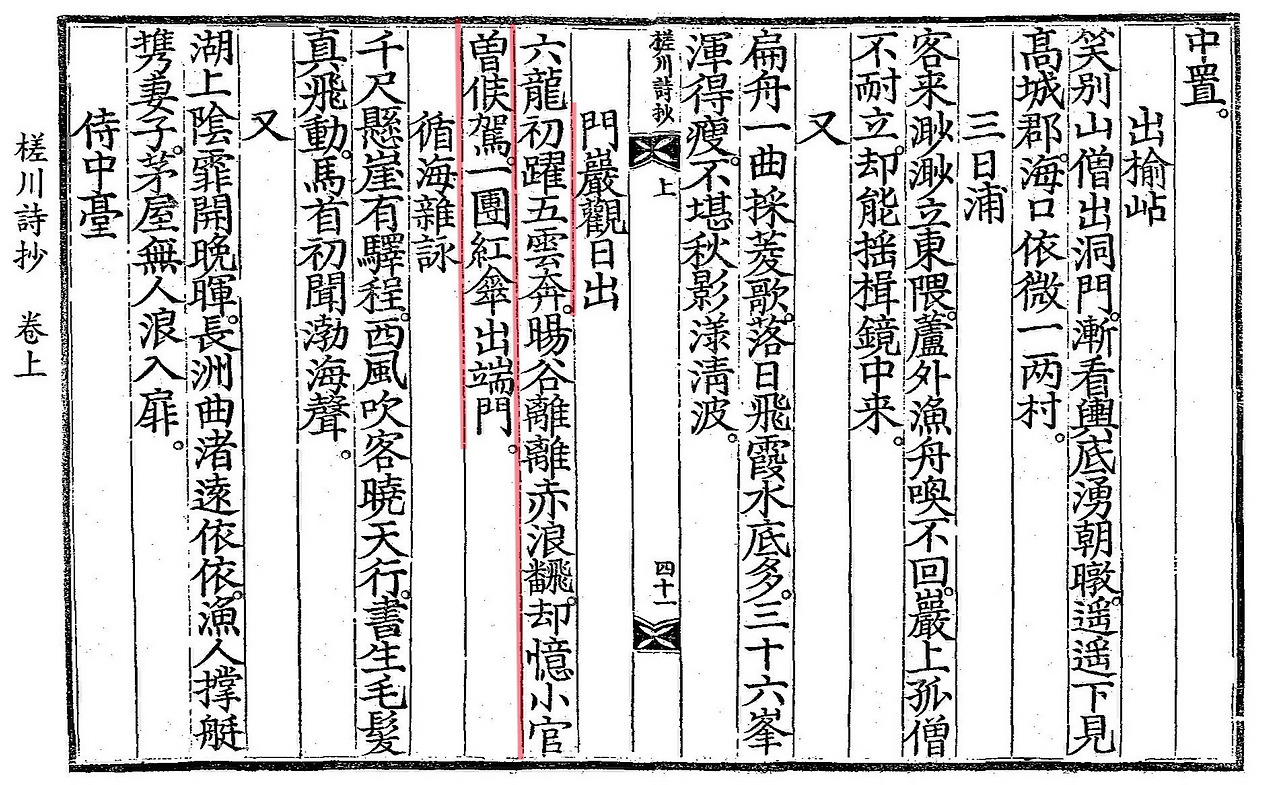 中置。
出揄岾
笑别山僧出洞門。漸看輿底湧朝暾。遥遥下見
髙城郡。海口依微一两村。
三日浦
客来渺渺立東隈。蘆外漁舟喚不回。巖上孤僧
不耐立。却能揺楫鏡中来。
又
扁舟一曲採菱歌。落日飛霞水底多。三十六峯
渾得瘦。不堪秋影漾淸波。
槎川詩抄 上 四十一
門巖觀日出
六龍初躍五雲奔。暘谷離離赤浪飜。却憶小官
曾候駕。一團紅傘出端門。
循海雜詠
千尺懸崖有驛程。西風吹客曉天行。書生毛髮
真飛動。馬首初聞渤海聲。
又
湖上陰霏開晩暉。長洲曲渚遠依依。漁人撑艇
携妻子。茅屋無人浪入扉。
侍中臺
槎川詩抄 卷上